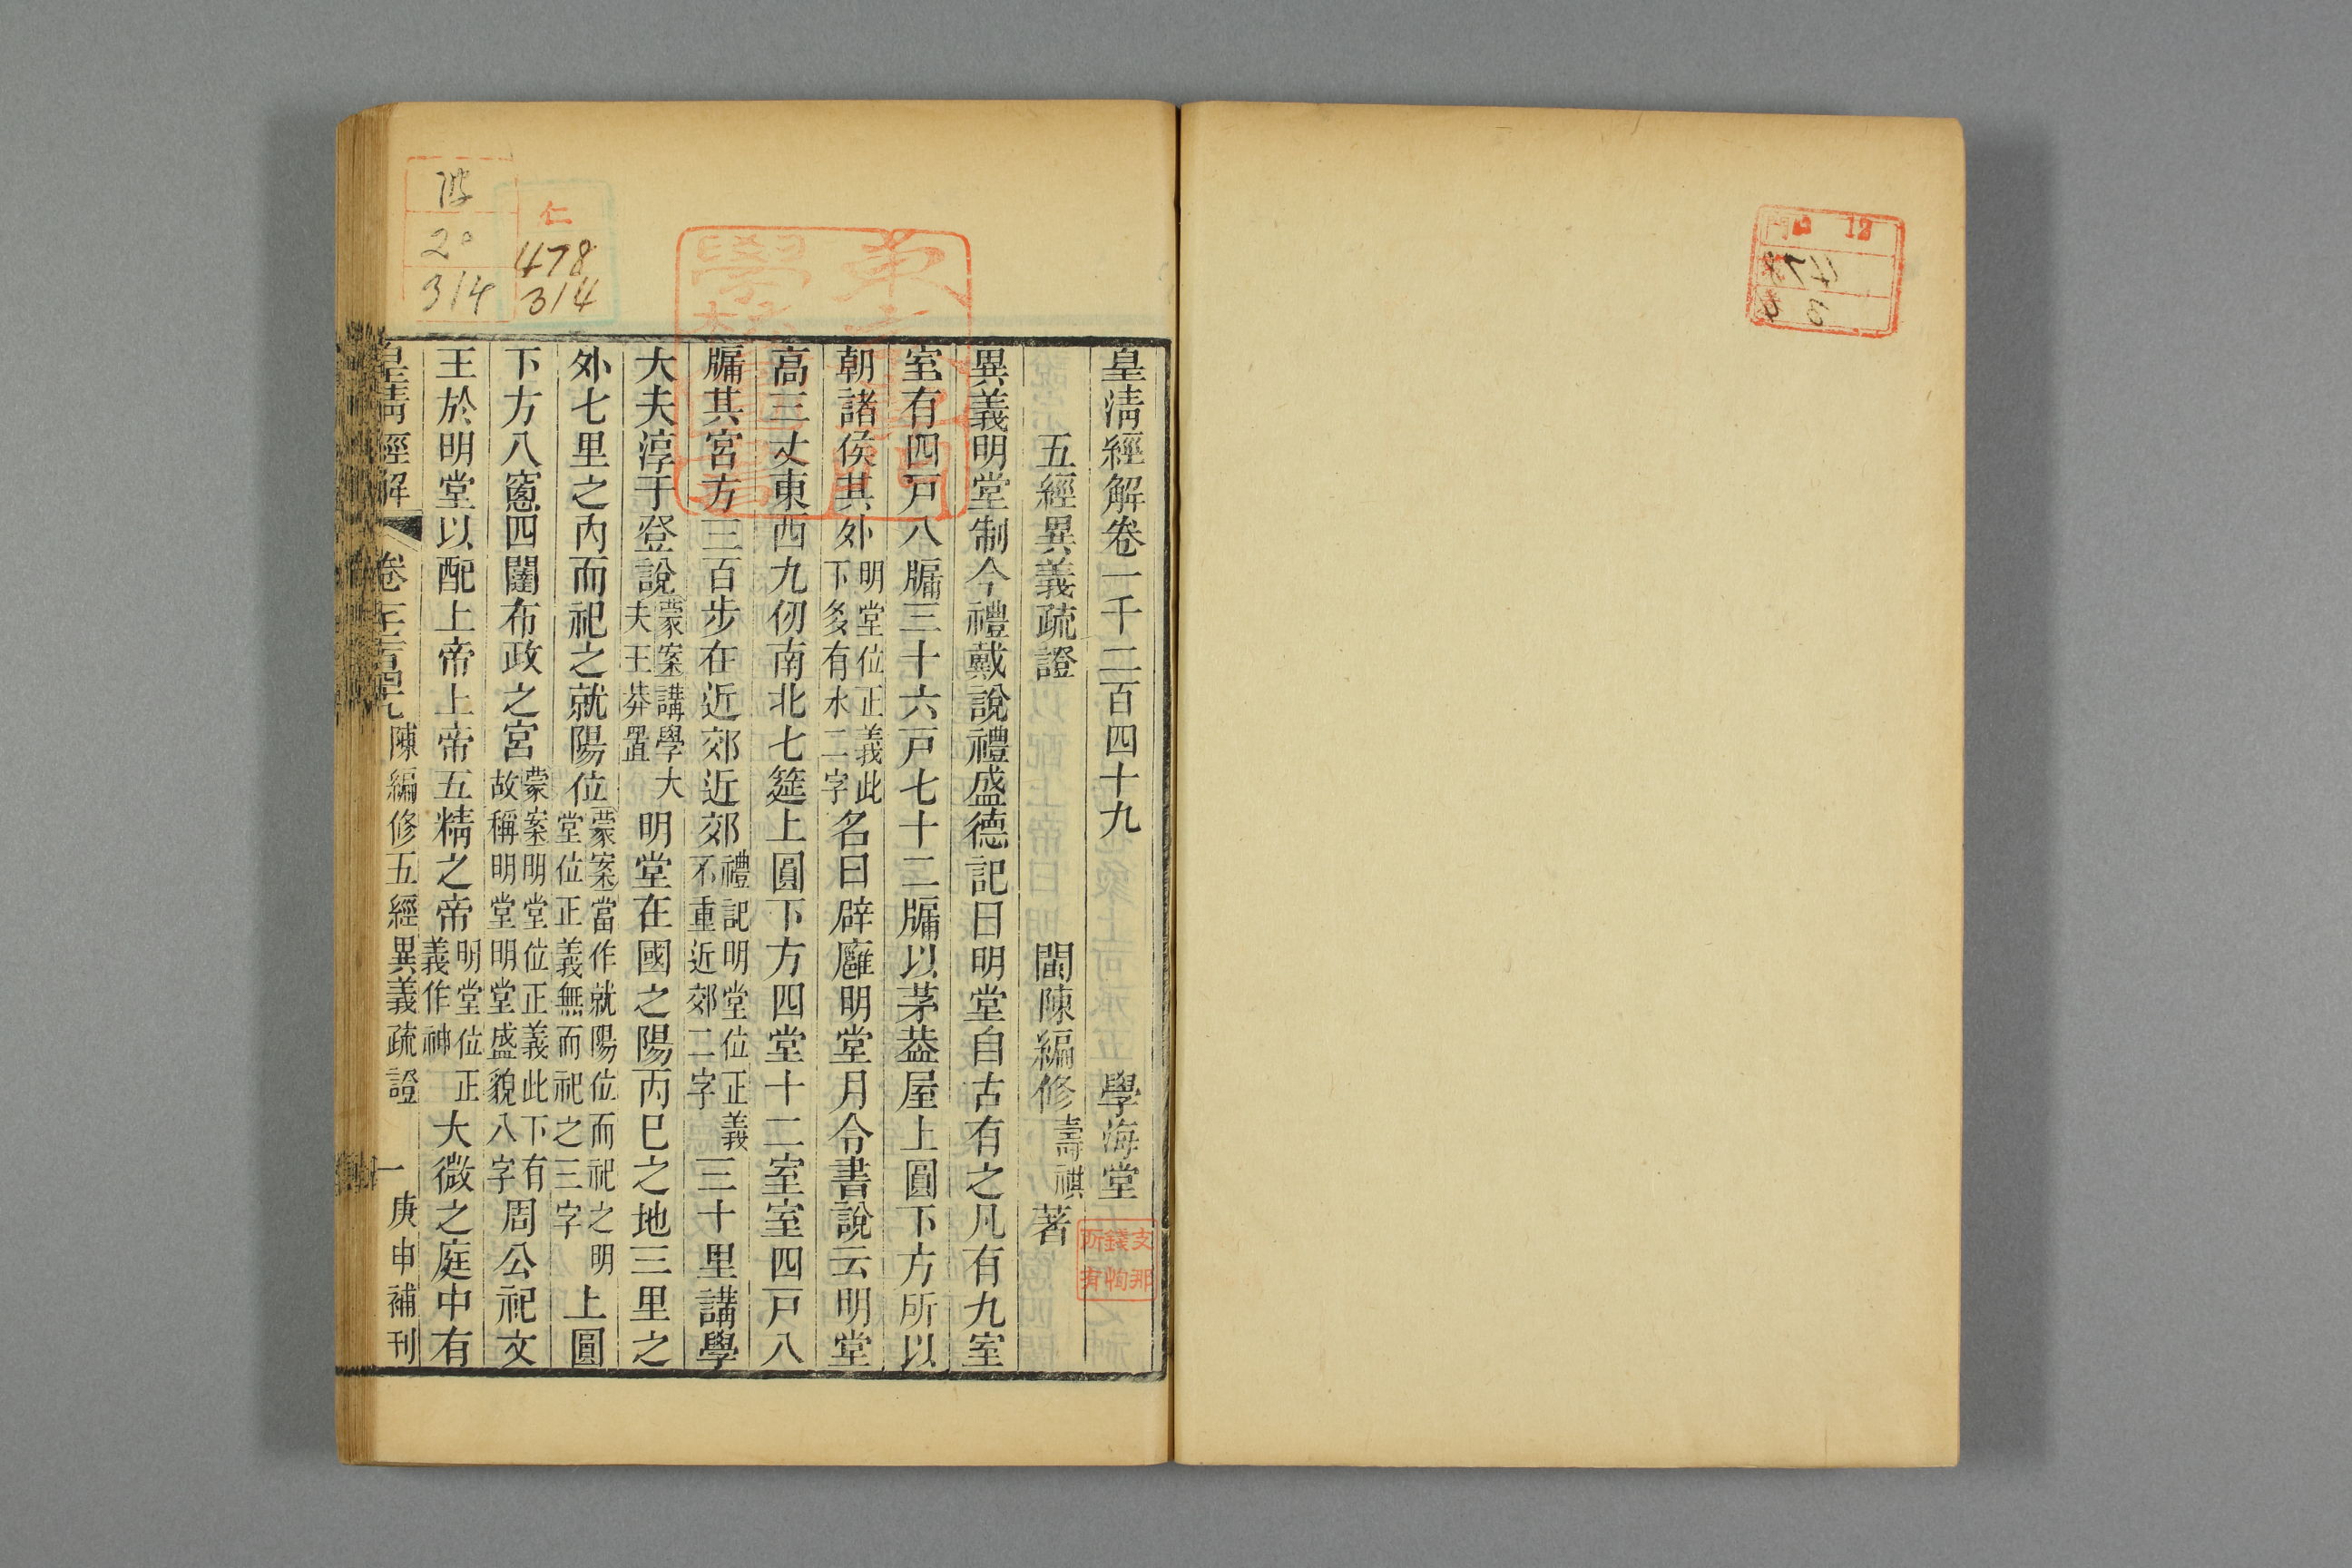 皇清經解卷一千二百四十九
學海堂
五經異義疏證
閩陳編修壽祺著
異義明堂制今禮戴說禮盛德記曰明堂自古有之凡有九室
室有四戶八牖三十六戶七十二牖以茅葢屋上圓下方所以
朝諸侯其外明堂位正義此下多有水二字名曰辟廱明堂月令書說云明堂
高三丈東西九仞南北七筵上圓下方四堂十二室室四戶八
牖其宮方三百步在近郊近郊禮記明堂位正義不重近郊二字三十里講學
大夫淳于登說蒙案講學大夫王莽置明堂在國之陽丙巳之地三里之
外七里之內而祀之就陽位蒙案當作就陽位而祀之明堂位正義無而祀之三字上圓
下方八窻四闥布政之宮蒙案明堂位正義此下有故稱明堂明堂盛貌八字周公祀文
王於明堂以配上帝上帝五精之帝明堂位正義作神大微之庭中有
皇清經解
卷
陳編修五經異義疏證
一
庚申補刊
支那
錢恂
所有
仁
478
314
20
314
門
12